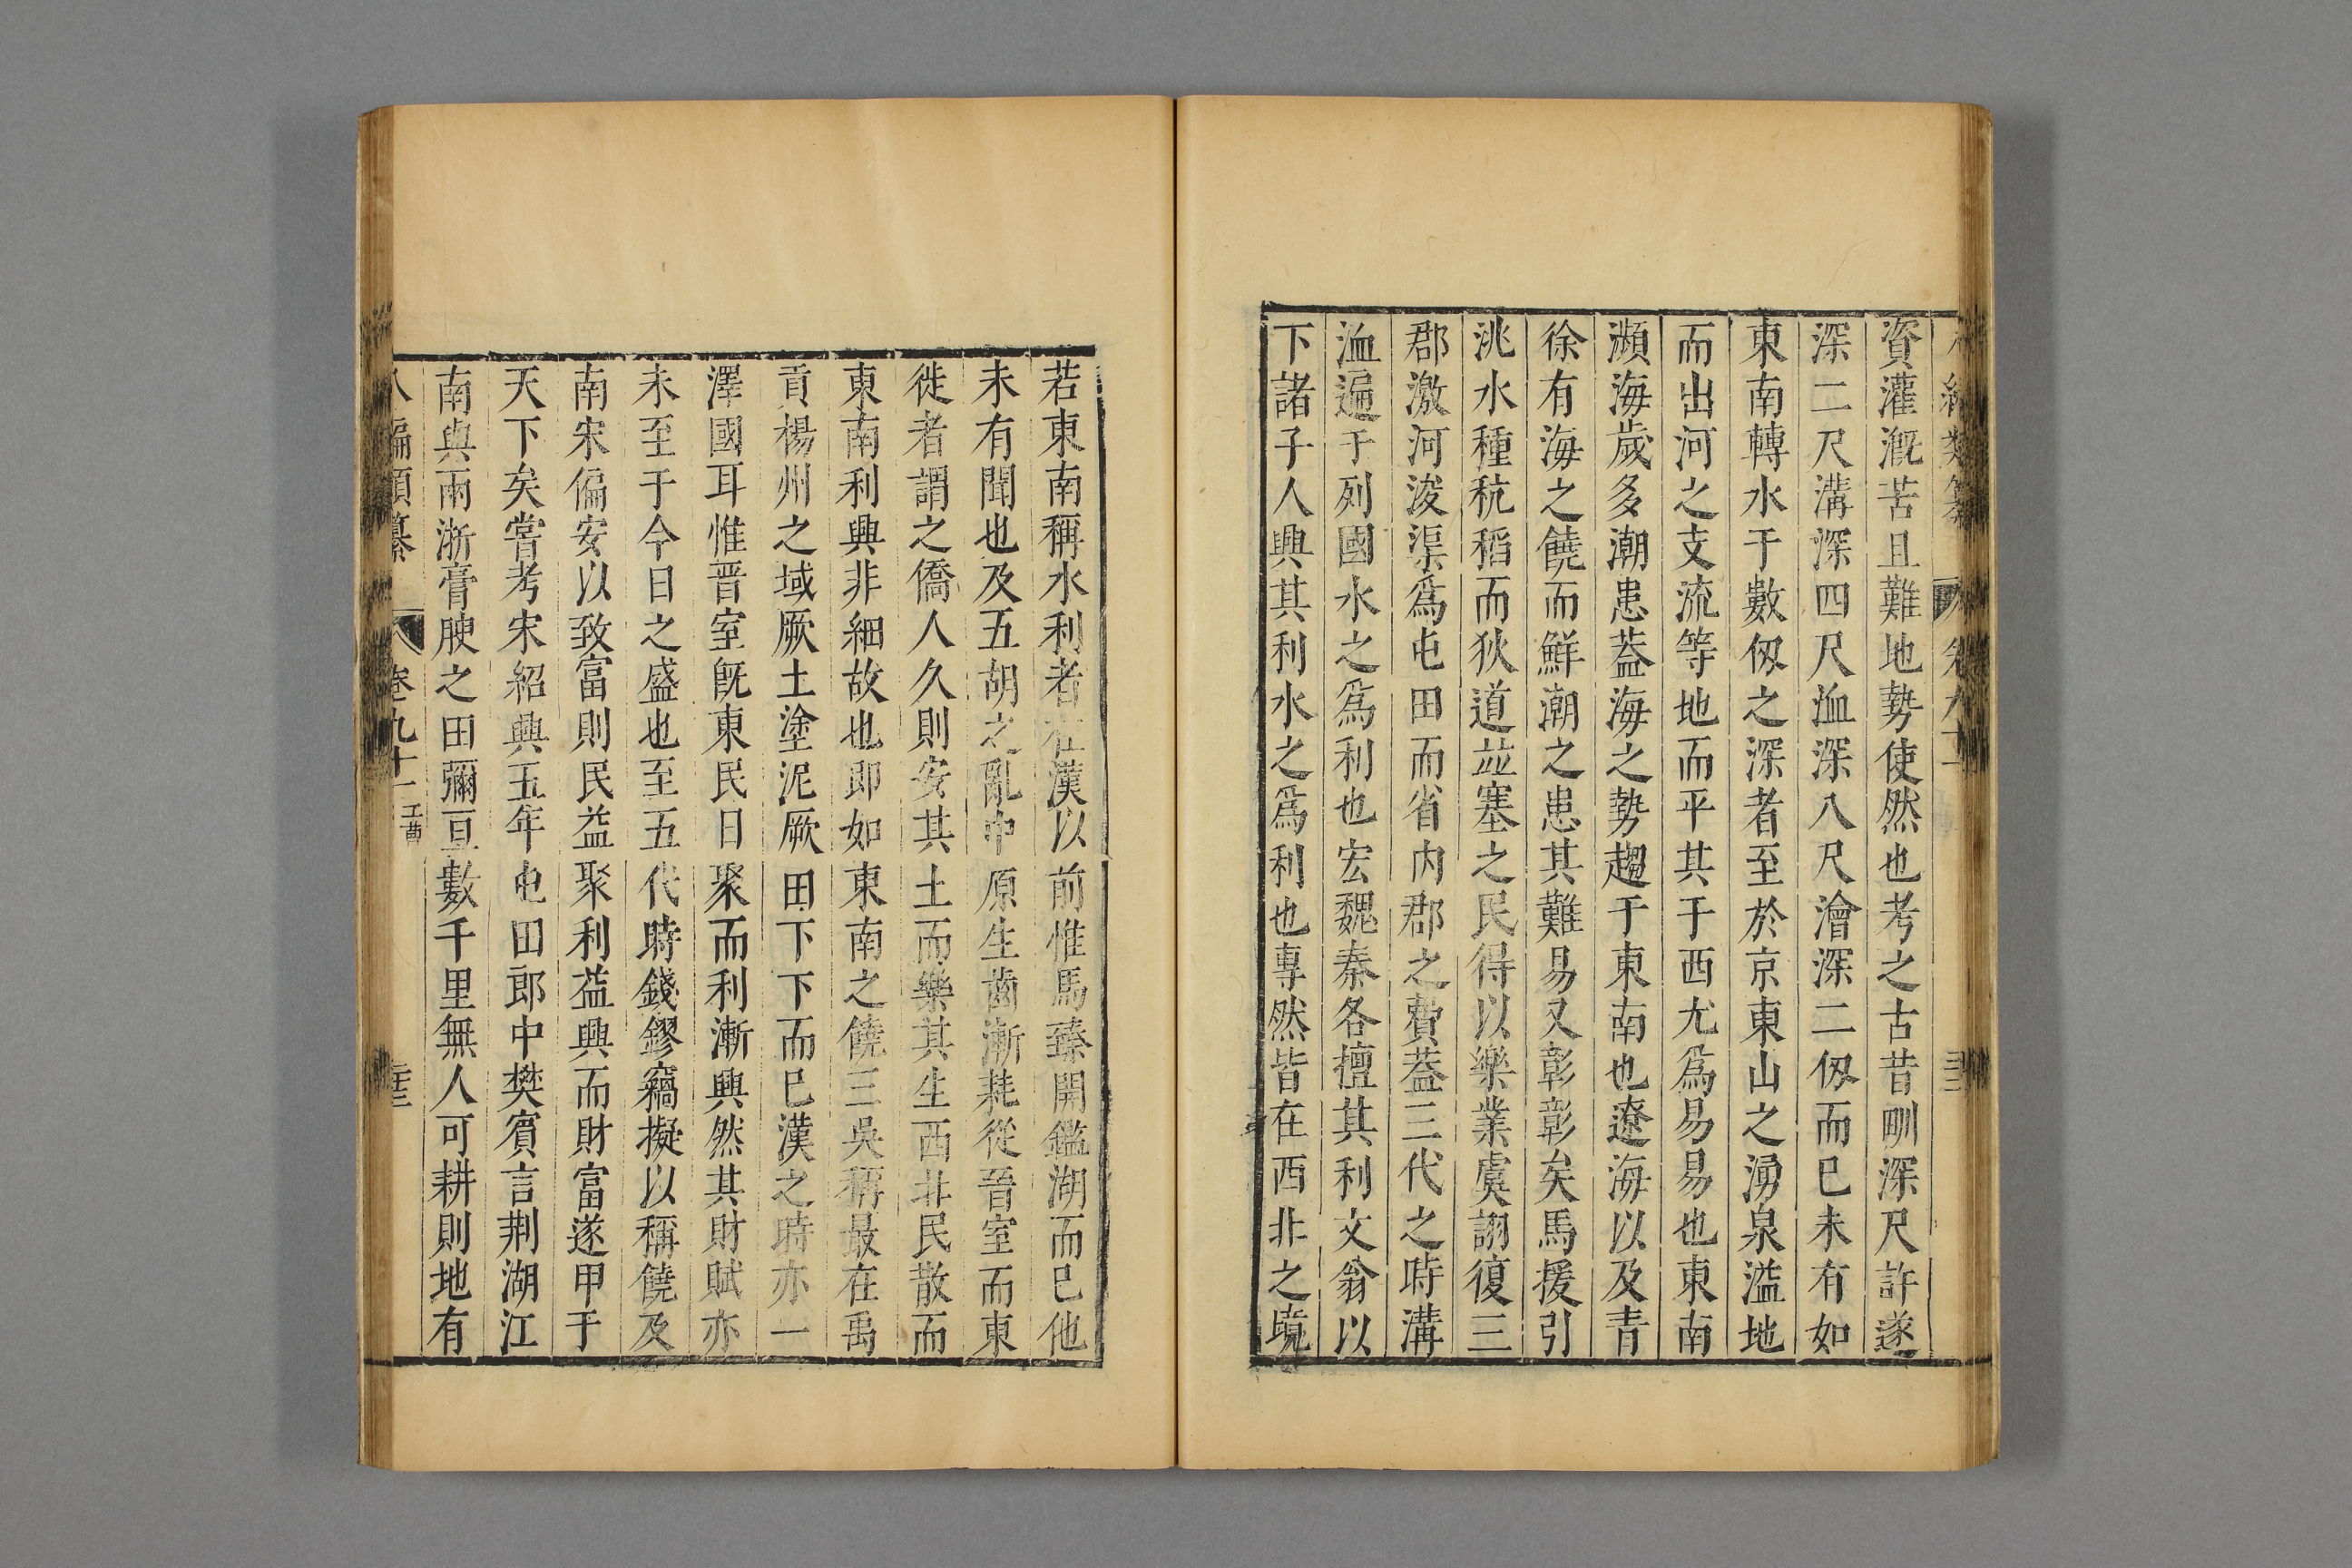 資灌溉苦且難地勢使然也考之古昔甽深尺許遂
深二尺溝深四尺洫深八尺澮深二仭而已未有如
東南轉水于數仭之深者至於京東山之湧泉溢地
而出河之支流等地而平其于西尤爲易易也東南
瀕海歲多潮患葢海之勢趨于東南也遼海以及青
徐有海之饒而鮮潮之患其難易又彰彰矣馬援引
洮水種秔稻而狄道並塞之民得以樂業虞詡復三
郡激河浚渠爲屯田而省内郡之費葢三代之時溝
洫遍于列國水之爲利也宏魏秦各擅其利文翁以
下諸子人興其利水之爲利也專然皆在西北之境
若東南稱水利者在漢以前惟馬臻開鑑湖而已他
未有聞也及五胡之亂中原生齒漸耗從晉室而東
徙者謂之僑人久則安其土而樂其生西北民散而
東南利興非細故也即如東南之饒三吳稱最在禹
貢楊州之域厥土塗泥厥田下下而已漢之時亦一
澤國耳惟晋室旣東民日聚而利漸興然其財賦亦
未至于今日之盛也至五代時錢鏐竊擬以稱饒及
南宋偏安以致富則民益聚利益興而財富遂甲于
天下矣嘗考宋紹興五年屯田郎中樊賔言荆湖江
南與兩浙膏腴之田彌亘數千里無人可耕則地有
八編類纂 卷九十一 工曹 三十三